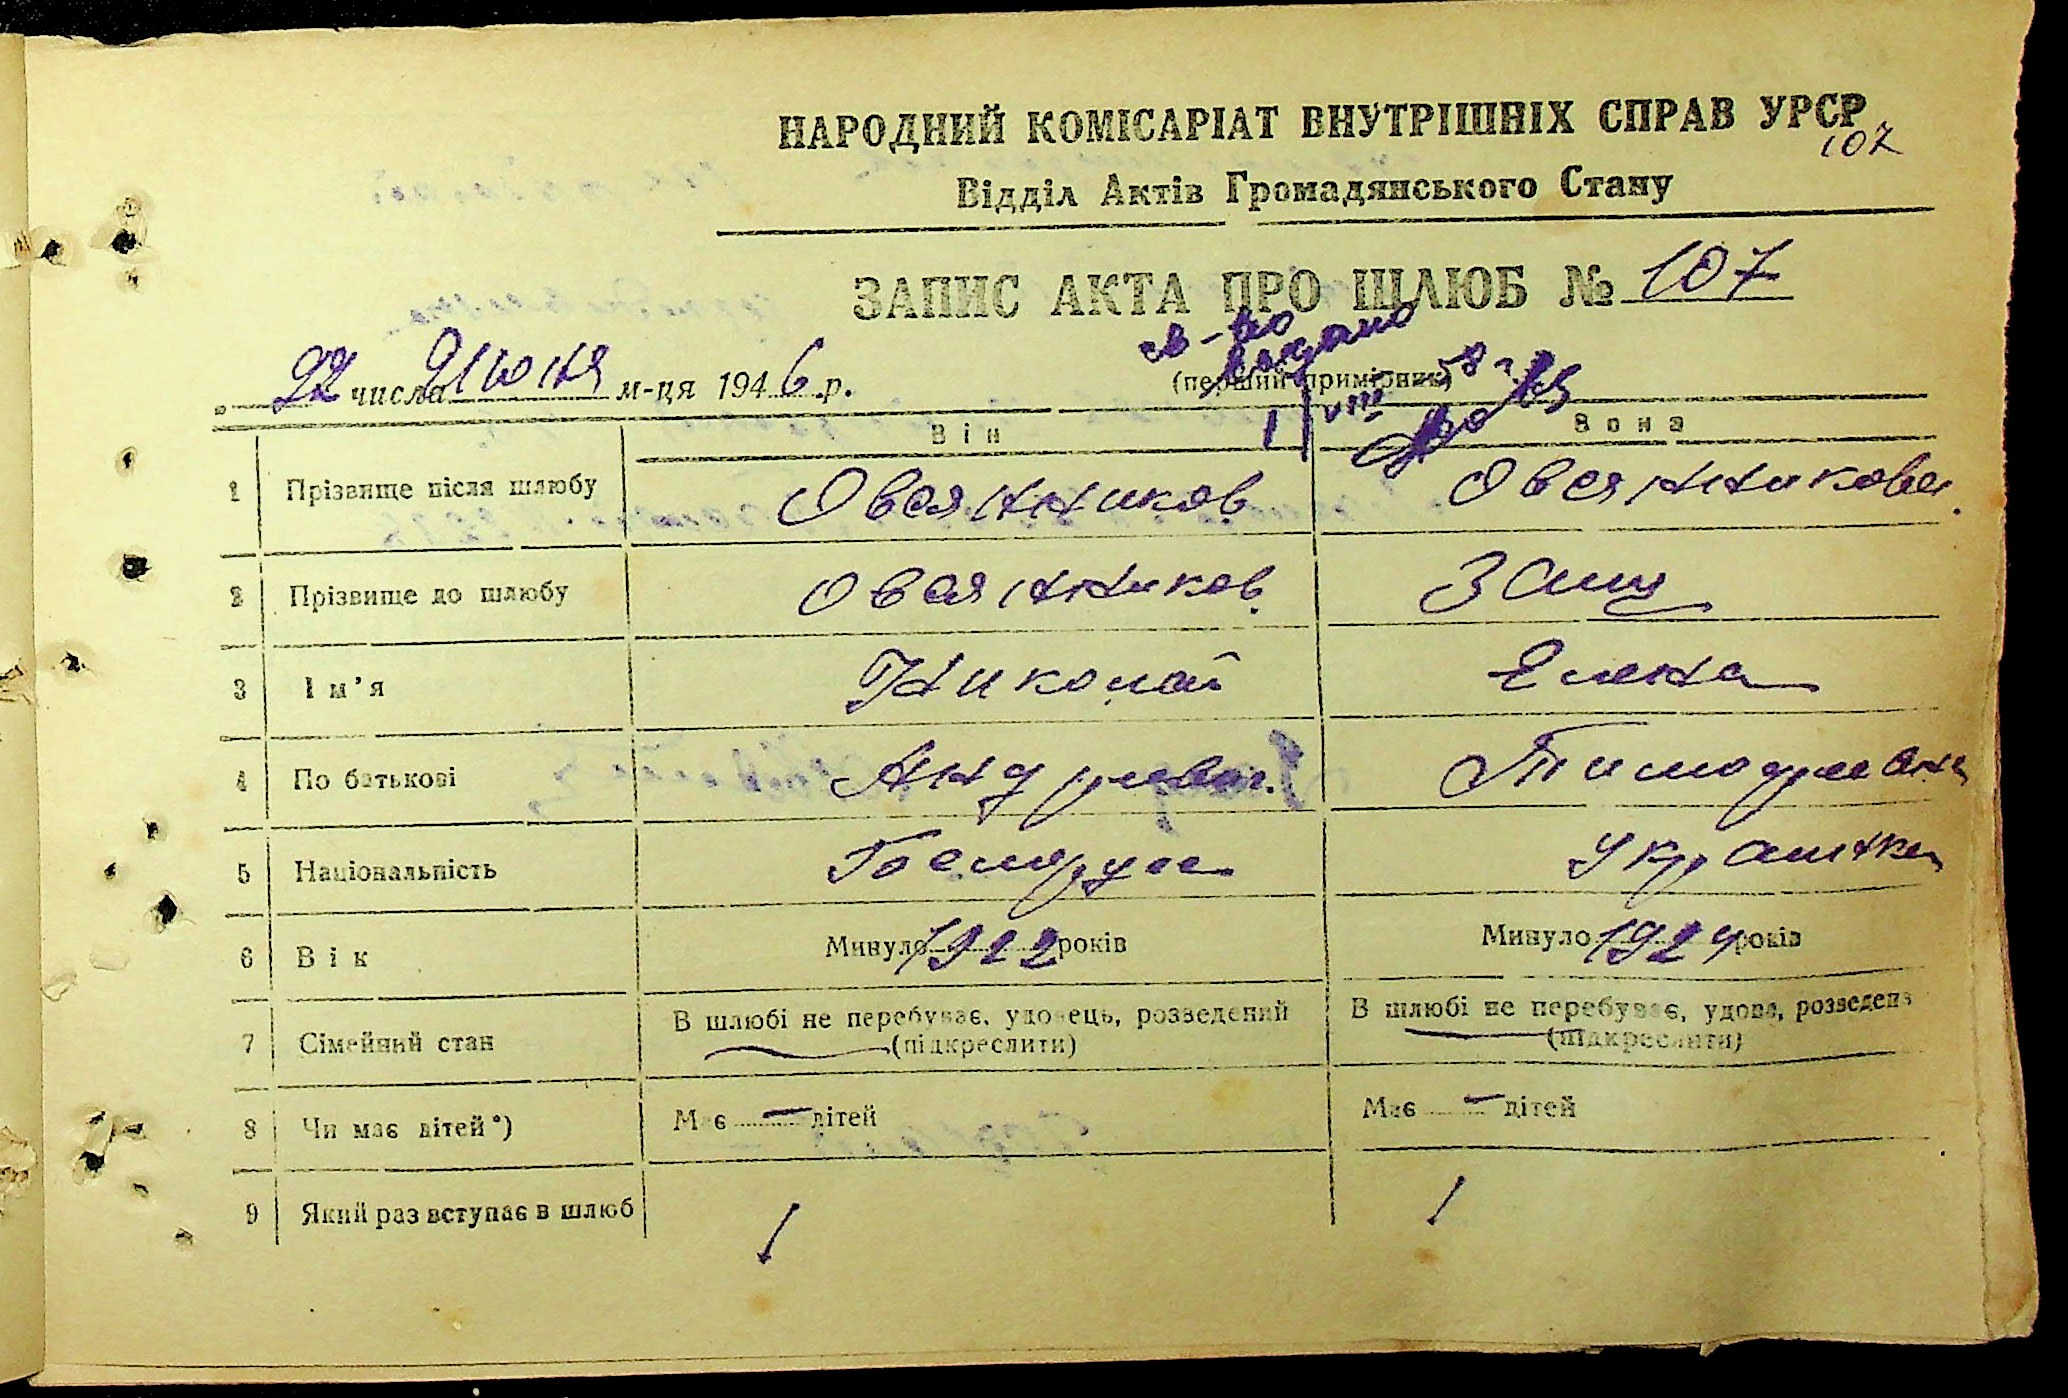 НАРОДНИЙ КОМІСАРІАТ ВНУТРІШНІХ СПРАВ УРСР
107
Відділ Актів Громадянського Стану
ЗАПИС АКТА ПРО ШЛЮБ № 107
св-во
выдано
22 числа Июня м-ця 1946 р.
(перший примірник)
Він Вона
1 Прізвище після шлюбу Овсянников Овсянникова
2 Прізвище до шлюбу Овсянников Заяц
3 Ім'я Николай Елена
4 По батькові Андреевич Тимофеевна
5 Національність Белорус Украинка
6 Вік Минуло 1922 років Минуло 1924 років
7 Сімейний стан В шлюбі не перебуває, удовець, розведений В шлюбі не перебуває, удова, розведена
(підкреслити) (підкреслити)
8 Чи має дітей*) Має – дітей Має – дітей
9 Який раз вступає в шлюб 1 1